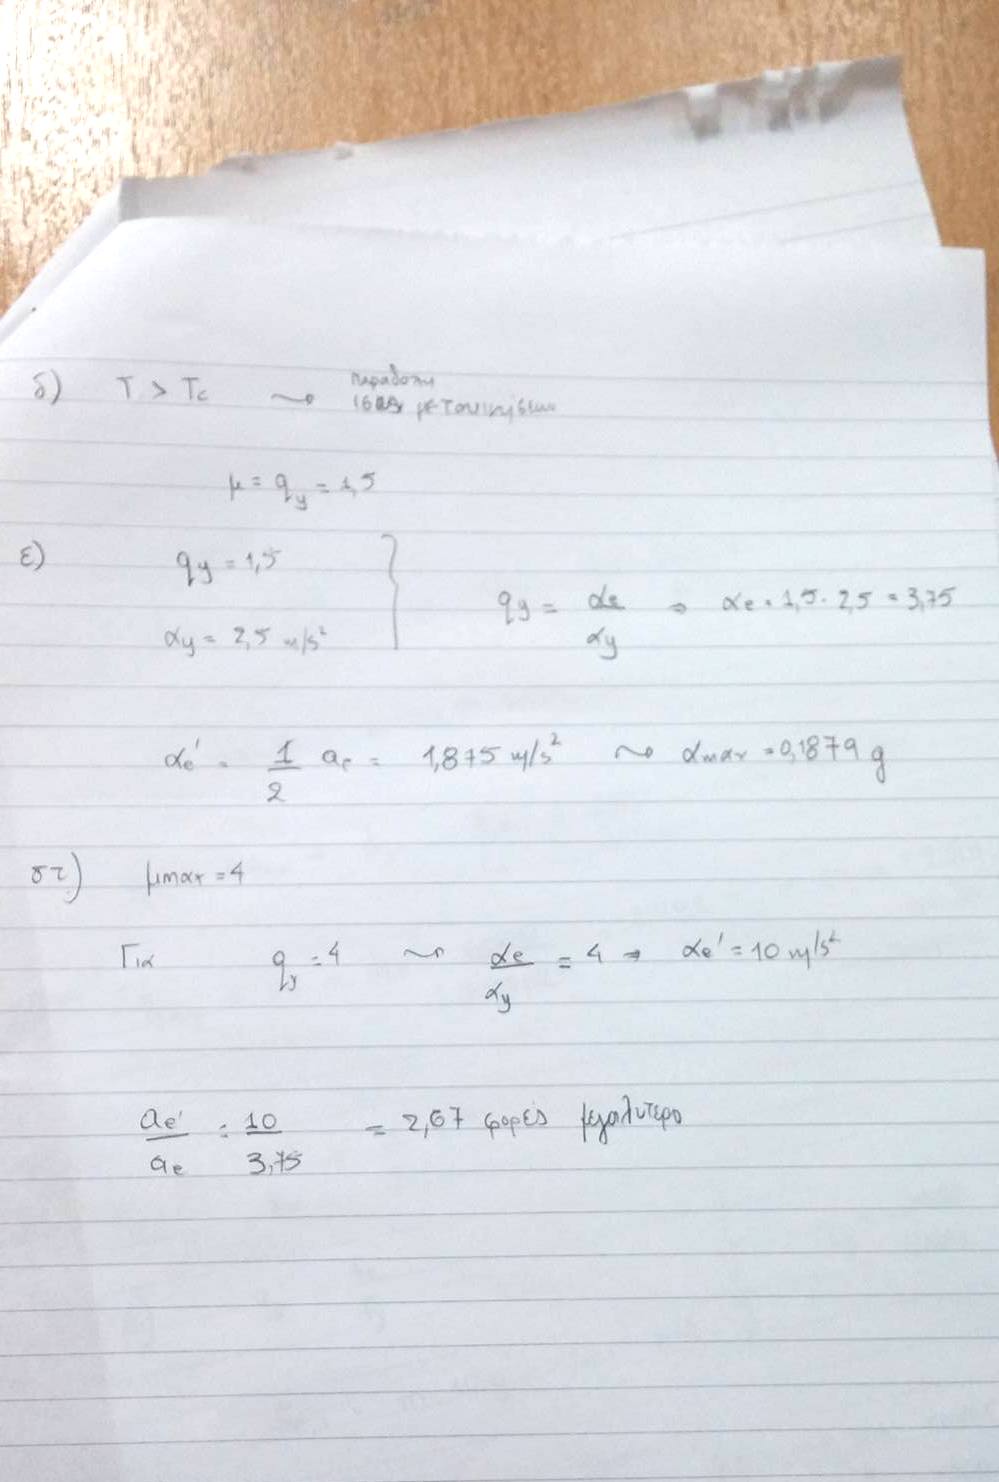 δ) T > Tc ⇝ παραδοχη
ισων μετακινησεων
μ = qy = 1,5
ε) qy = 1,5
αy = 2,5 m/s²
qy = αe / αy ⇒ αe = 1,5 · 2,5 = 3,75
αe' = 1/2 ae = 1,875 m/s² ⇝ αmax = 0,1879 g
στ) μmax = 4
Για qy = 4 ⇝ αe / αy = 4 ⇒ αe' = 10 m/s²
ae' / ae = 10 / 3,75 = 2,67 φορές μεγαλυτερο